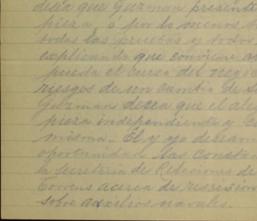 desea que Guzman presente
pieza ó por lo menos
todas las pruebas y todos
explicando que conviene
pueda el curso del nego
riesgos de un cambio de
Guzman desea que el ale
pieza independiente y
misma. El y yo deseam
oportunidad las consta
la secretaria de Relaciones de
Correns acerca de
sobre auxilios navales.